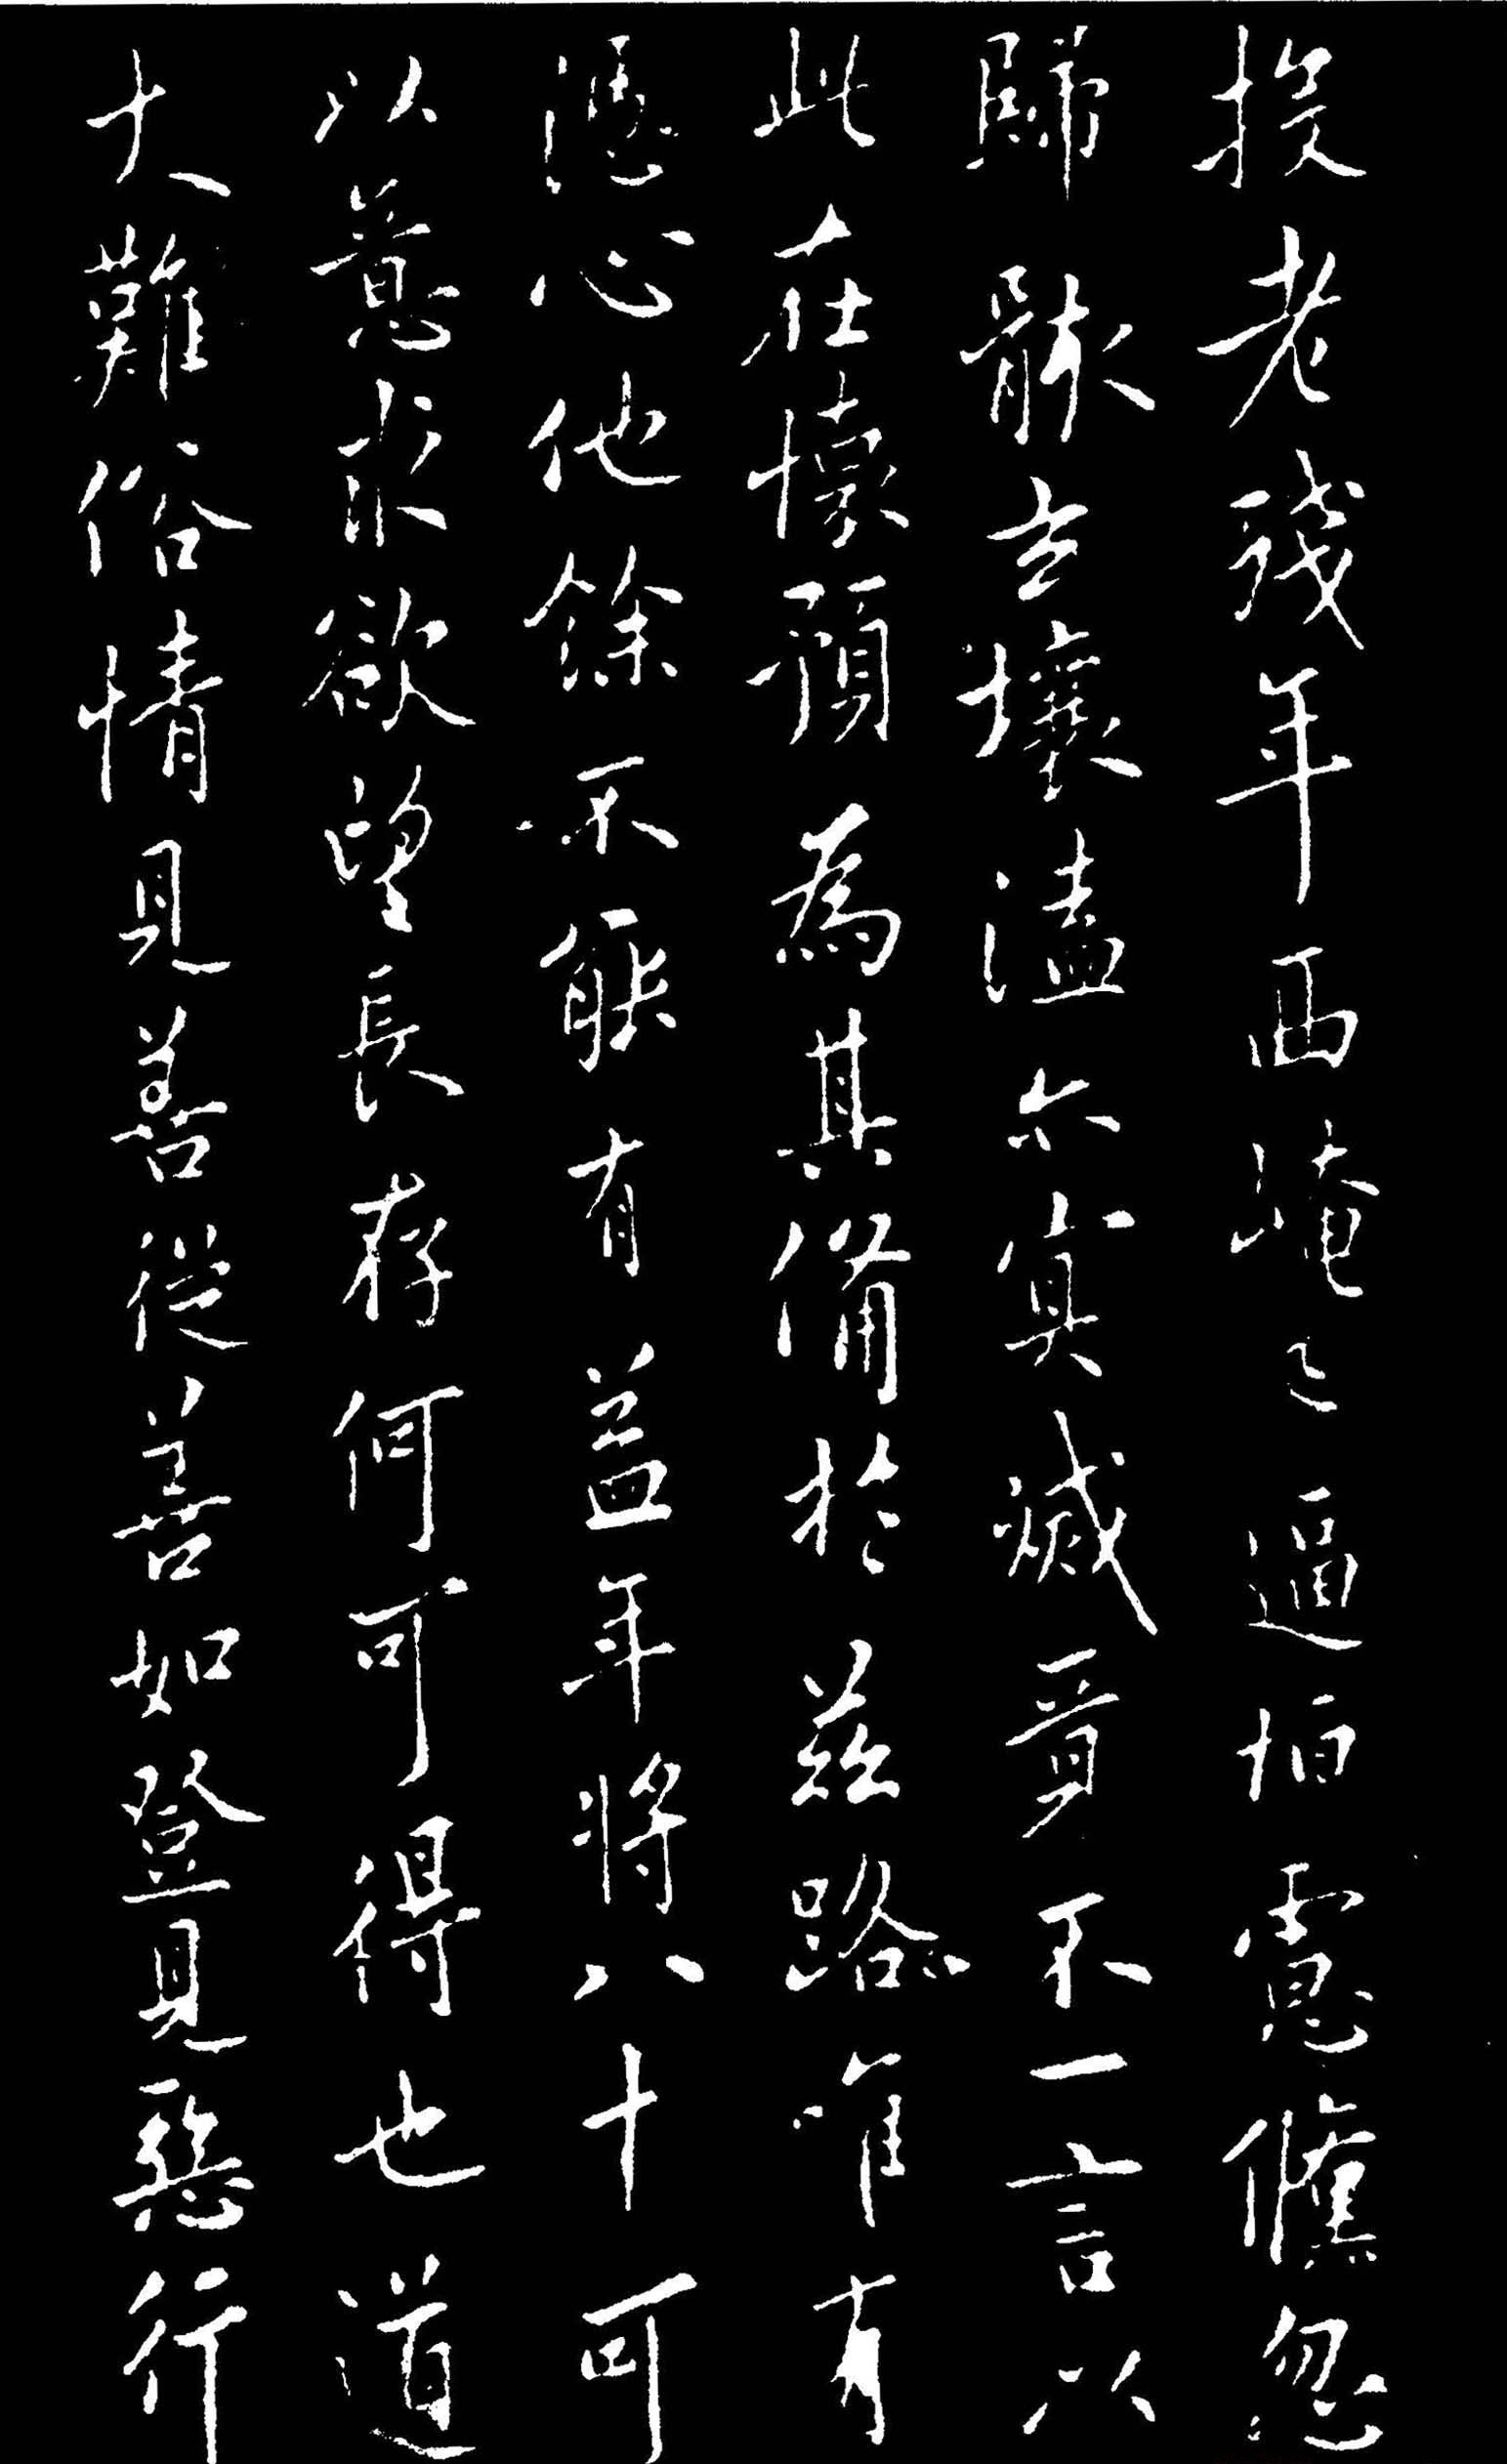 投老殘年西崦之逼怕慮儵忽
歸骸玄壤溘尒冥滅不一言以
此在懷預為其備於茲路唯有
憑心他餘不能有益年將八十可
以意求欲望長存何可得也道
大難俗情見善從善如登見惡行